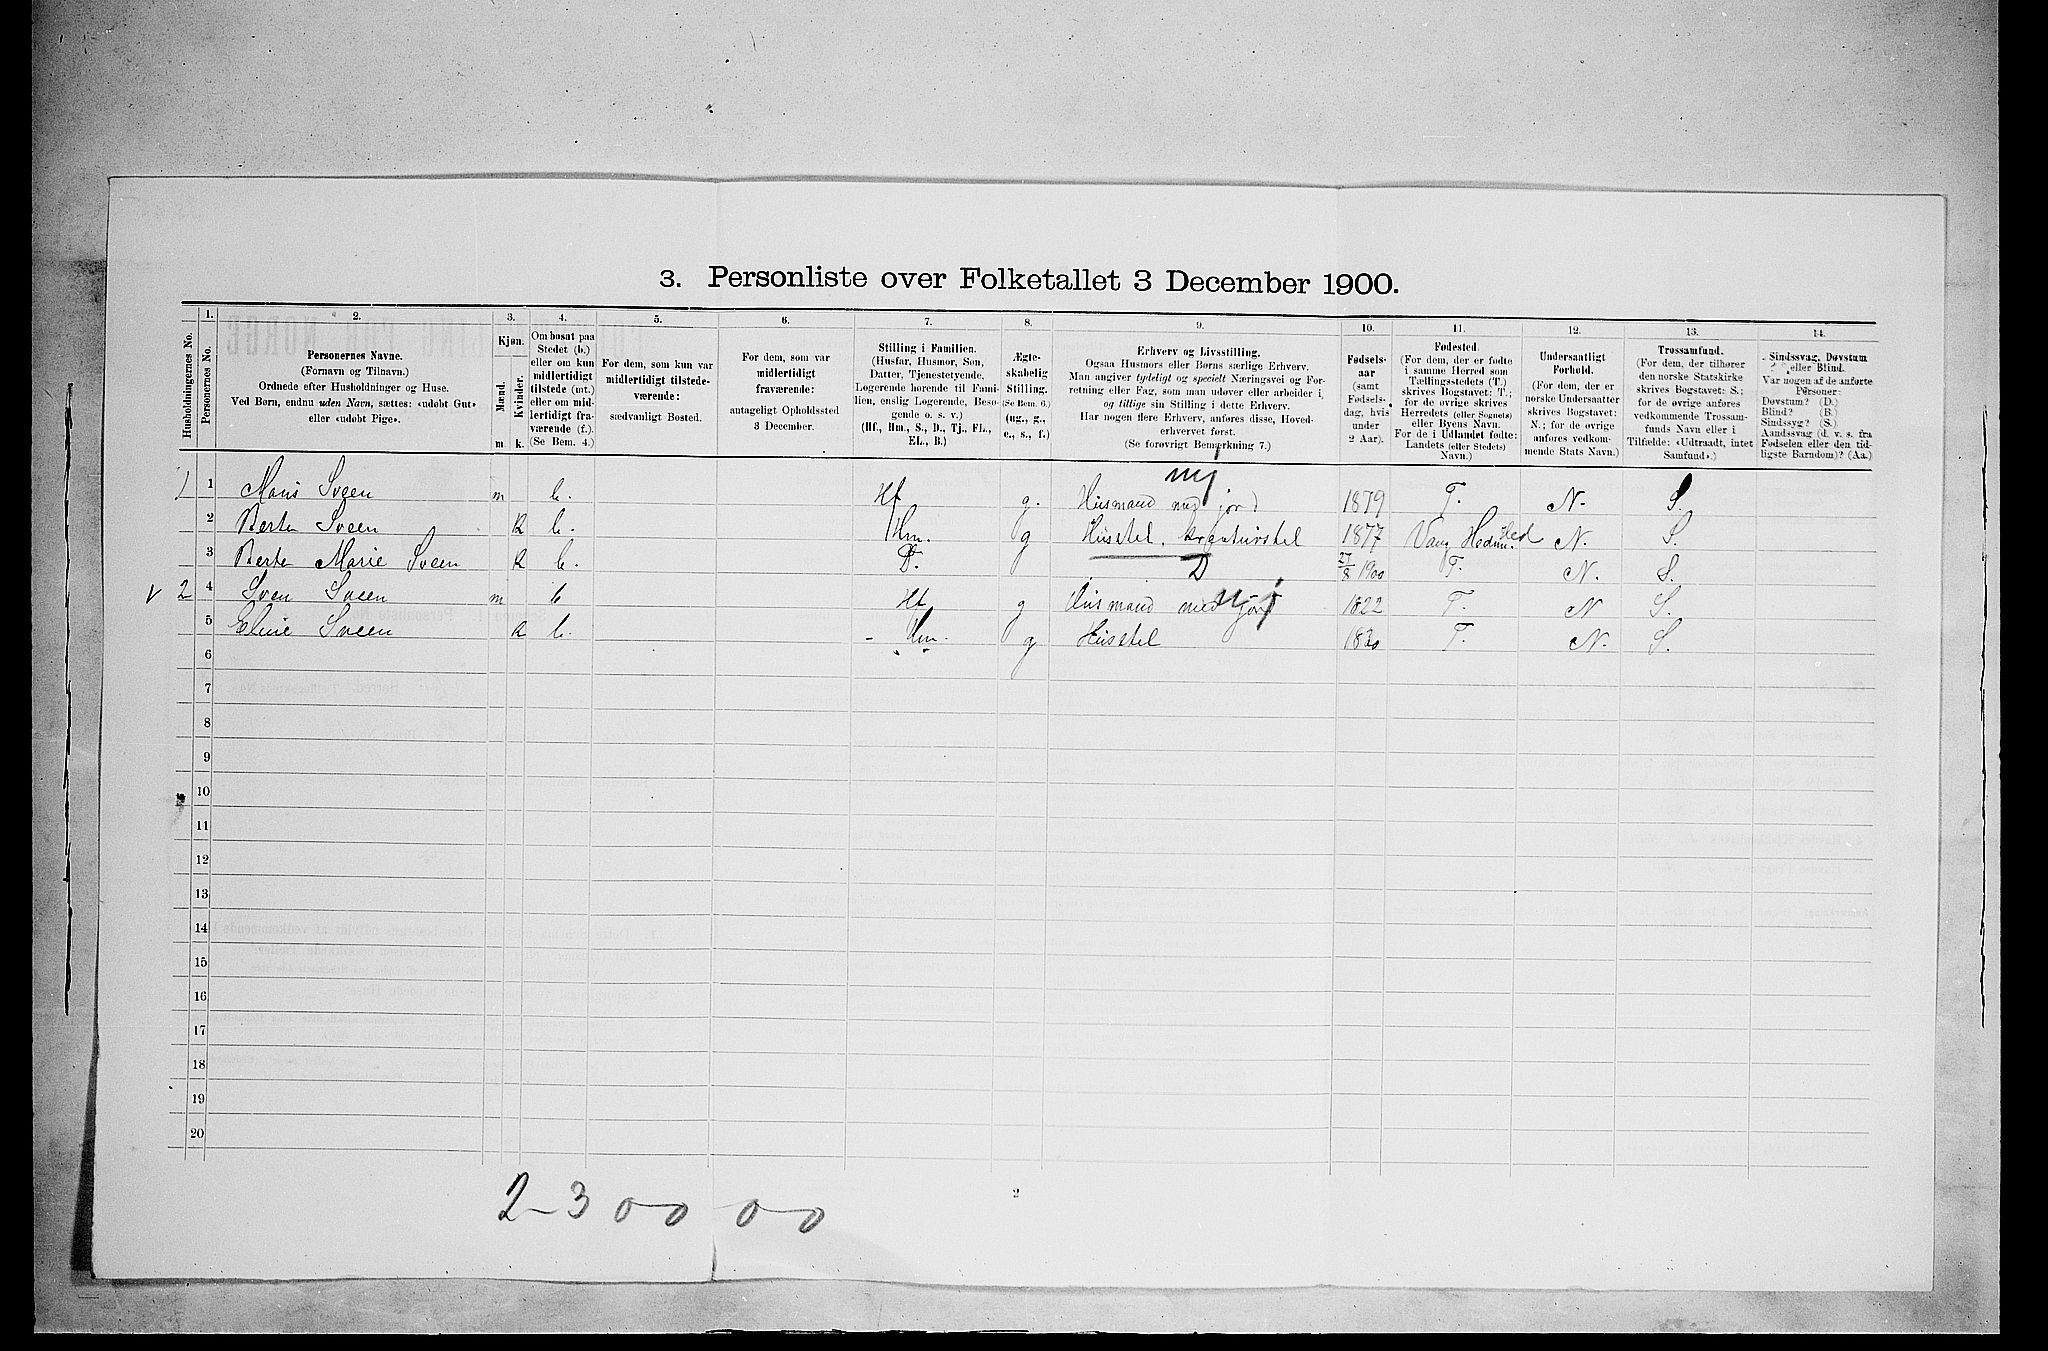 3. Personliste over Folketallet 3 December 1900.
1. 2. 3. 4. 5. 6. 7. 8. 9. 10. 11. 12. 13. 14.
Husholdningernes No.
Personernes No.
Personernes Navne.
(Fornavn og Tilnavn.)
Ordnede efter Husholdninger og Huse.
Ved Børn, endnu uden Navn, sættes: «udøbt Gut»
eller «udøbt Pige».
Kjøn.
Mænd.
Kvinder.
m k.
Om bosat paa
Stedet (b.)
eller om kun
midlertidigt
tilstede (mt.)
eller om mid-
lertidigt fra-
værende (f.)
(Se Bem. 4.)
For dem, som kun var
midlertidigt tilstede-
værende:
sædvanligt Bosted.
For dem, som var
midlertidigt
fraværende:
antageligt Opholdssted
3 December.
Stilling i Familien.
(Husfar, Husmor, Søn,
Datter, Tjenestetyende,
Logerende hørende til Fami-
lien, enslig Logerende, Besø-
gende o. s. v.)
(Hf., Hm., S., D., Tj., FL.,
EL., B.)
Ægte-
skabelig
Stilling.
(Se Bem. 6.)
(ug., g.,
e., s., f.)
Erhverv og Livsstilling.
Ogsaa Husmors eller Børns særlige Erhverv.
Man angiver tydeligt og specielt Næringsvei og For-
retning eller Fag, som man udøver eller arbeider i,
og tillige sin Stilling i dette Erhverv.
Har nogen flere Erhverv, anføres disse, Hoved-
erhvervet først.
(Se forøvrigt Bemærkning 7.)
Fødsels-
aar
(samt
Fødsels-
dag, hvis
under
2 Aar).
Fødested.
(For dem, der er fødte
i samme Herred som
Tællingsstedets (T.)
skrives Bogstavet: T.;
for de øvrige skrives
Herredets (eller Sognets)
eller Byens Navn.
For de i Udlandet fødte:
Landets (eller Stedets)
Navn.)
Undersaatligt
Forhold.
(For dem, der er
norske Undersaatter
skrives Bogstavet:
N.; for de øvrige
anføres vedkom-
mende Stats Navn.)
Trossamfund.
(For dem, der tilhører
den norske Statskirke
skrives Bogstavet: S.;
for de øvrige anføres
vedkommende Trossam-
funds Navn eller i
Tilfælde: «Udtraadt, intet
Samfund».)
Sindssvag, Døvstum
eller Blind.
Var nogen af de anførte
Personer:
Døvstum? (D.)
Blind? (B.)
Sindssyg? (S.)
Aandssvag (d. v. s. fra
Fødselen eller den tid-
ligste Barndom)? (Aa.)
1 1 Maris Sveen m b. Hf g. Husmand med jord 1879 T. N. S.
2 Berte Sveen K b. Hm. g Husstel, kreaturstel 1877 Vang Hedm. N. S.
3 Berte Marie Sveen K b. D. D 27/8 1900 T. N. S.
v 2 4 Sven Sveen m b Hf g Husmand med jord 1822 T. N S.
5 Eline Sveen K b. Hm. g Husstel 1830 T. N. S.
6
7
8
9
10
11
12
13
14
15
16
17
18
19
20
2-3 00 00
2